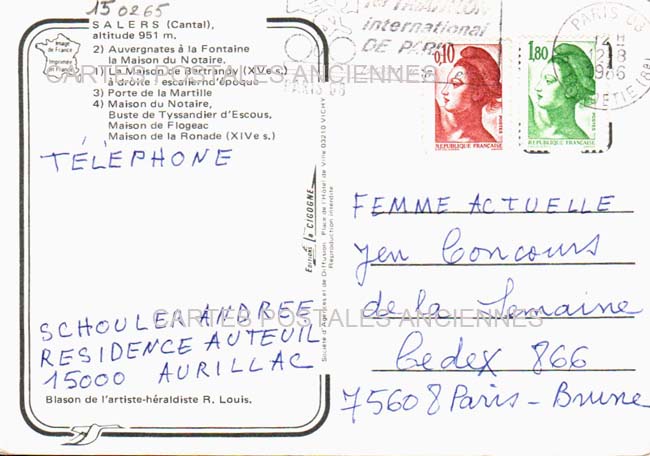 15 0265
SALERS (Cantal),
altitude 951 m.
Image de France
Imprimée en France
2) Auvergnates à la Fontaine
la Maison du Notaire.
1) La Maison de Bartrandy (XVe s.)
à droite : escalier d'époque
3) Porte de la Martille
4) Maison du Notaire,
Buste de Tyssandier d'Escous,
Maison de Flogeac
Maison de la Ronade (XIVe s.)
TÉLÉPHONE
SCHOULER ANDREE
RESIDENCE AUTEUIL
15000 AURILLAC
Blason de l'artiste-héraldiste R. Louis.
Editions la CIGOGNE
Société d'Agences et de Diffusion. Place de l'Hôtel de Ville 03210 VICHY
Reproduction interdite.
1er TRIATHLON
international
DE PARIS
PARIS 08
0,10
RÉPUBLIQUE FRANÇAISE
1,80
POSTES
RÉPUBLIQUE FRANÇAISE
PARIS 08
12 H
12-8
1986
FEMME ACTUELLE
Jeu Concours
de la Semaine
Cedex 866
75608 Paris-Brune
CARTES POSTALES ANCIENNES
CARTES POSTALES ANCIENNES